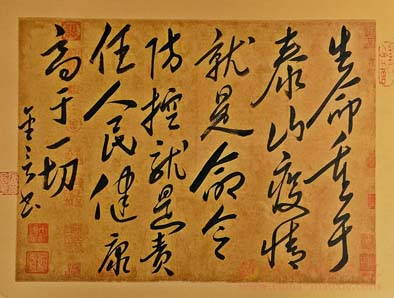 生命重于
泰山疫情
就是命令
防控就是责
任人民健康
高于一切